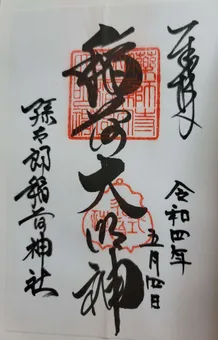 奉拝
稲荷大明神
令和四年
五月四日
孫太郎稲荷神社